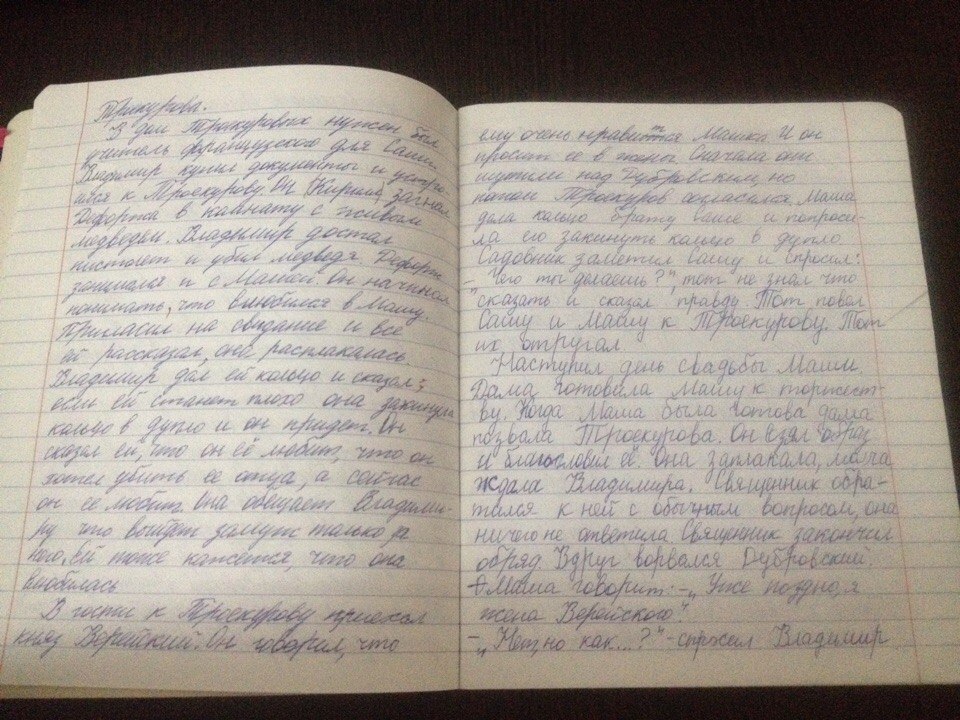 Троекурова.
В дом Троекуровых нужен был
учитель французского для Саши.
Владимир купил документы и устро-
ился к Троекурову. Он (Кирила) загнал
Дефоржа в комнату с живым
медведем. Владимир достал
пистолет и убил медведя. Дефорж
занимался и с Машей. Он начинал
понимать, что влюбился в Машу.
Пригласил на свидание и всё
ей рассказал, она расплакалась.
Владимир дал ей кольцо и сказал;
если ей станет плохо она закинула
кольцо в дупло и он придет. Он
сказал ей, что он её любит, что он
хотел убить её отца, а сейчас
он её любит. Она обещает Владими-
ру что выйдет замуж только за
него, ей тоже кажется, что она
влюбилась
В гости к Троекурову приехал
князь Верейский. Он говорил, что
ему очень нравится Машка. И он
просит её в жены. Сначала они
шутили над Дубровским, но
потом Троекуров согласился. Маша
дала кольцо брату Саше и попроси-
ла его закинуть кольцо в дупло.
Садовник заметил Сашу и спросил:
- "Что ты делаешь?", тот не знал что
сказать и сказал правду. Тот повёл
Сашу и Машу к Троекурову. Тот
их отругал
Наступил день свадьбы Маши.
Дама готовила Машу к торжест-
ву. Когда Маша была готова дама
позвала Троекурова. Он взял образ
и благословил её. Она заплакала, молча
ждала Владимира. Священник обра-
тился к ней с обычным вопросом, она
ничего не ответила. Священник закончил
обряд. Вдруг ворвался Дубровский.
А Маша говорит: - „Уже поздно, я
жена Верейского".
- „Нет, но как...?" - спросил Владимир